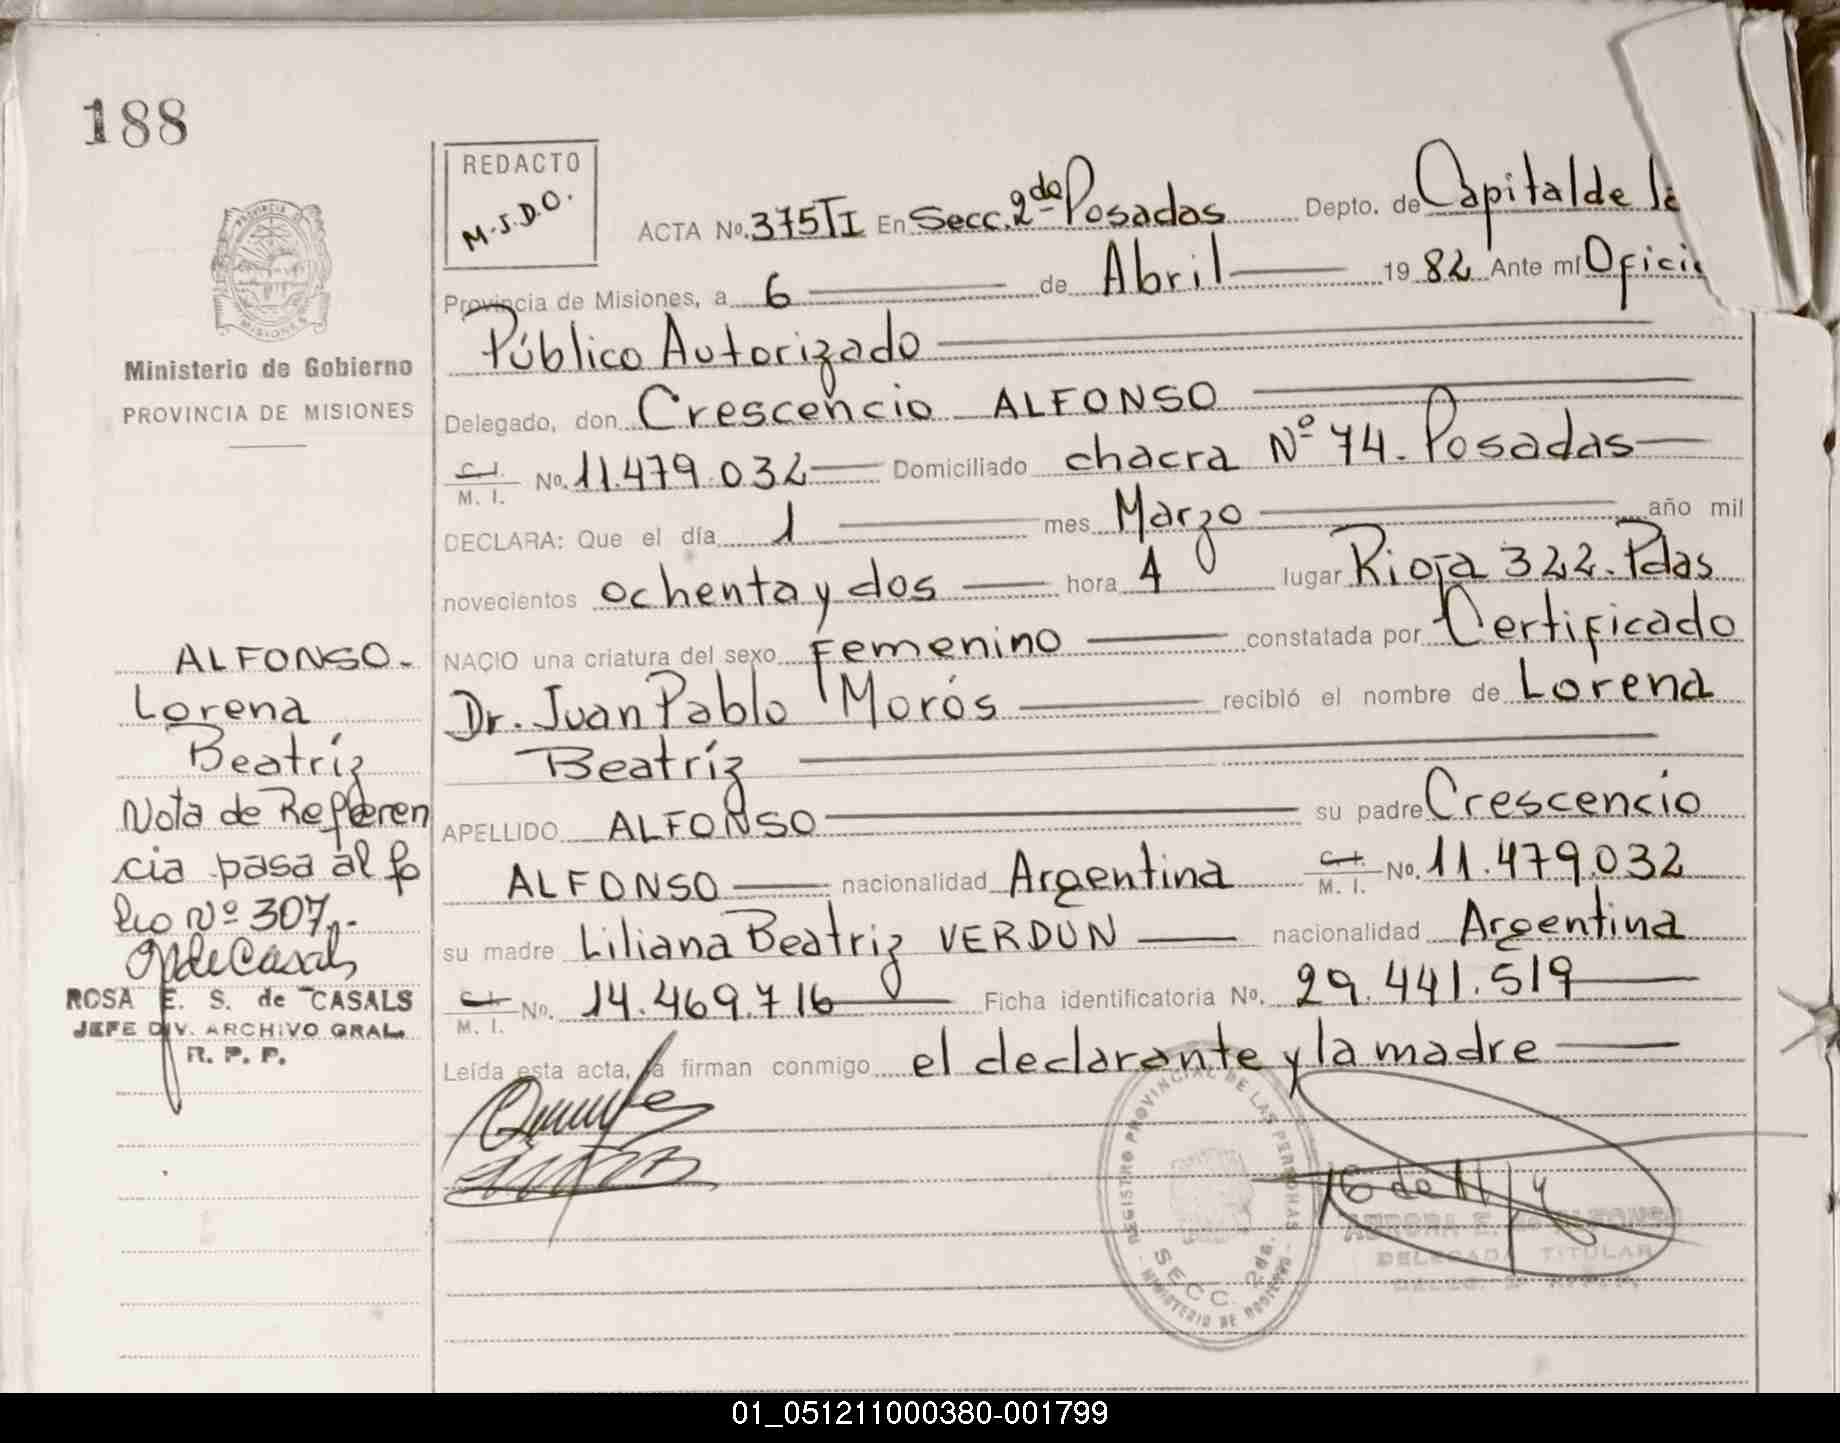 188
REDACTO
M.J.D.O.
ACTA No. 375 TI En Secc. 2da Posadas Depto. de Capital de la
Provincia de Misiones, a 6 de Abril 1982 Ante mí Oficial
Público Autorizado
Ministerio de Gobierno
PROVINCIA DE MISIONES
Delegado, don Crescencio ALFONSO
C.I. M.I. No. 11.479.032 Domiciliado chacra Nº 74. Posadas
DECLARA: Que el día 1 mes Marzo año mil
novecientos ochenta y dos hora 4 lugar Rioja 322. Pdas
NACIO una criatura del sexo Femenino constatada por Certificado
Dr. Juan Pablo Morós recibió el nombre de Lorena
Beatríz
APELLIDO ALFONSO su padre Crescencio
ALFONSO nacionalidad Argentina C.I. M.I. No. 11.479.032
su madre Liliana Beatriz VERDUN nacionalidad Argentina
C.I. M.I. No. 14.469.716 Ficha identificatoria No. 29.441.519
Leída esta acta, la firman conmigo el declarante y la madre
ALFONSO.-
Lorena
Beatríz
Nota de Referen
cia pasa al fo
lio Nº 307.-
ROSA E. S. de CASALS
JEFE DIV. ARCHIVO GRAL.
R. P. P.
REGISTRO PROVINCIAL DE LAS PERSONAS
SECC. 2da.
MINISTERIO DE GOBIERNO
AURORA E. de ALFONSO
DELEGADA TITULAR
01_051211000380-001799